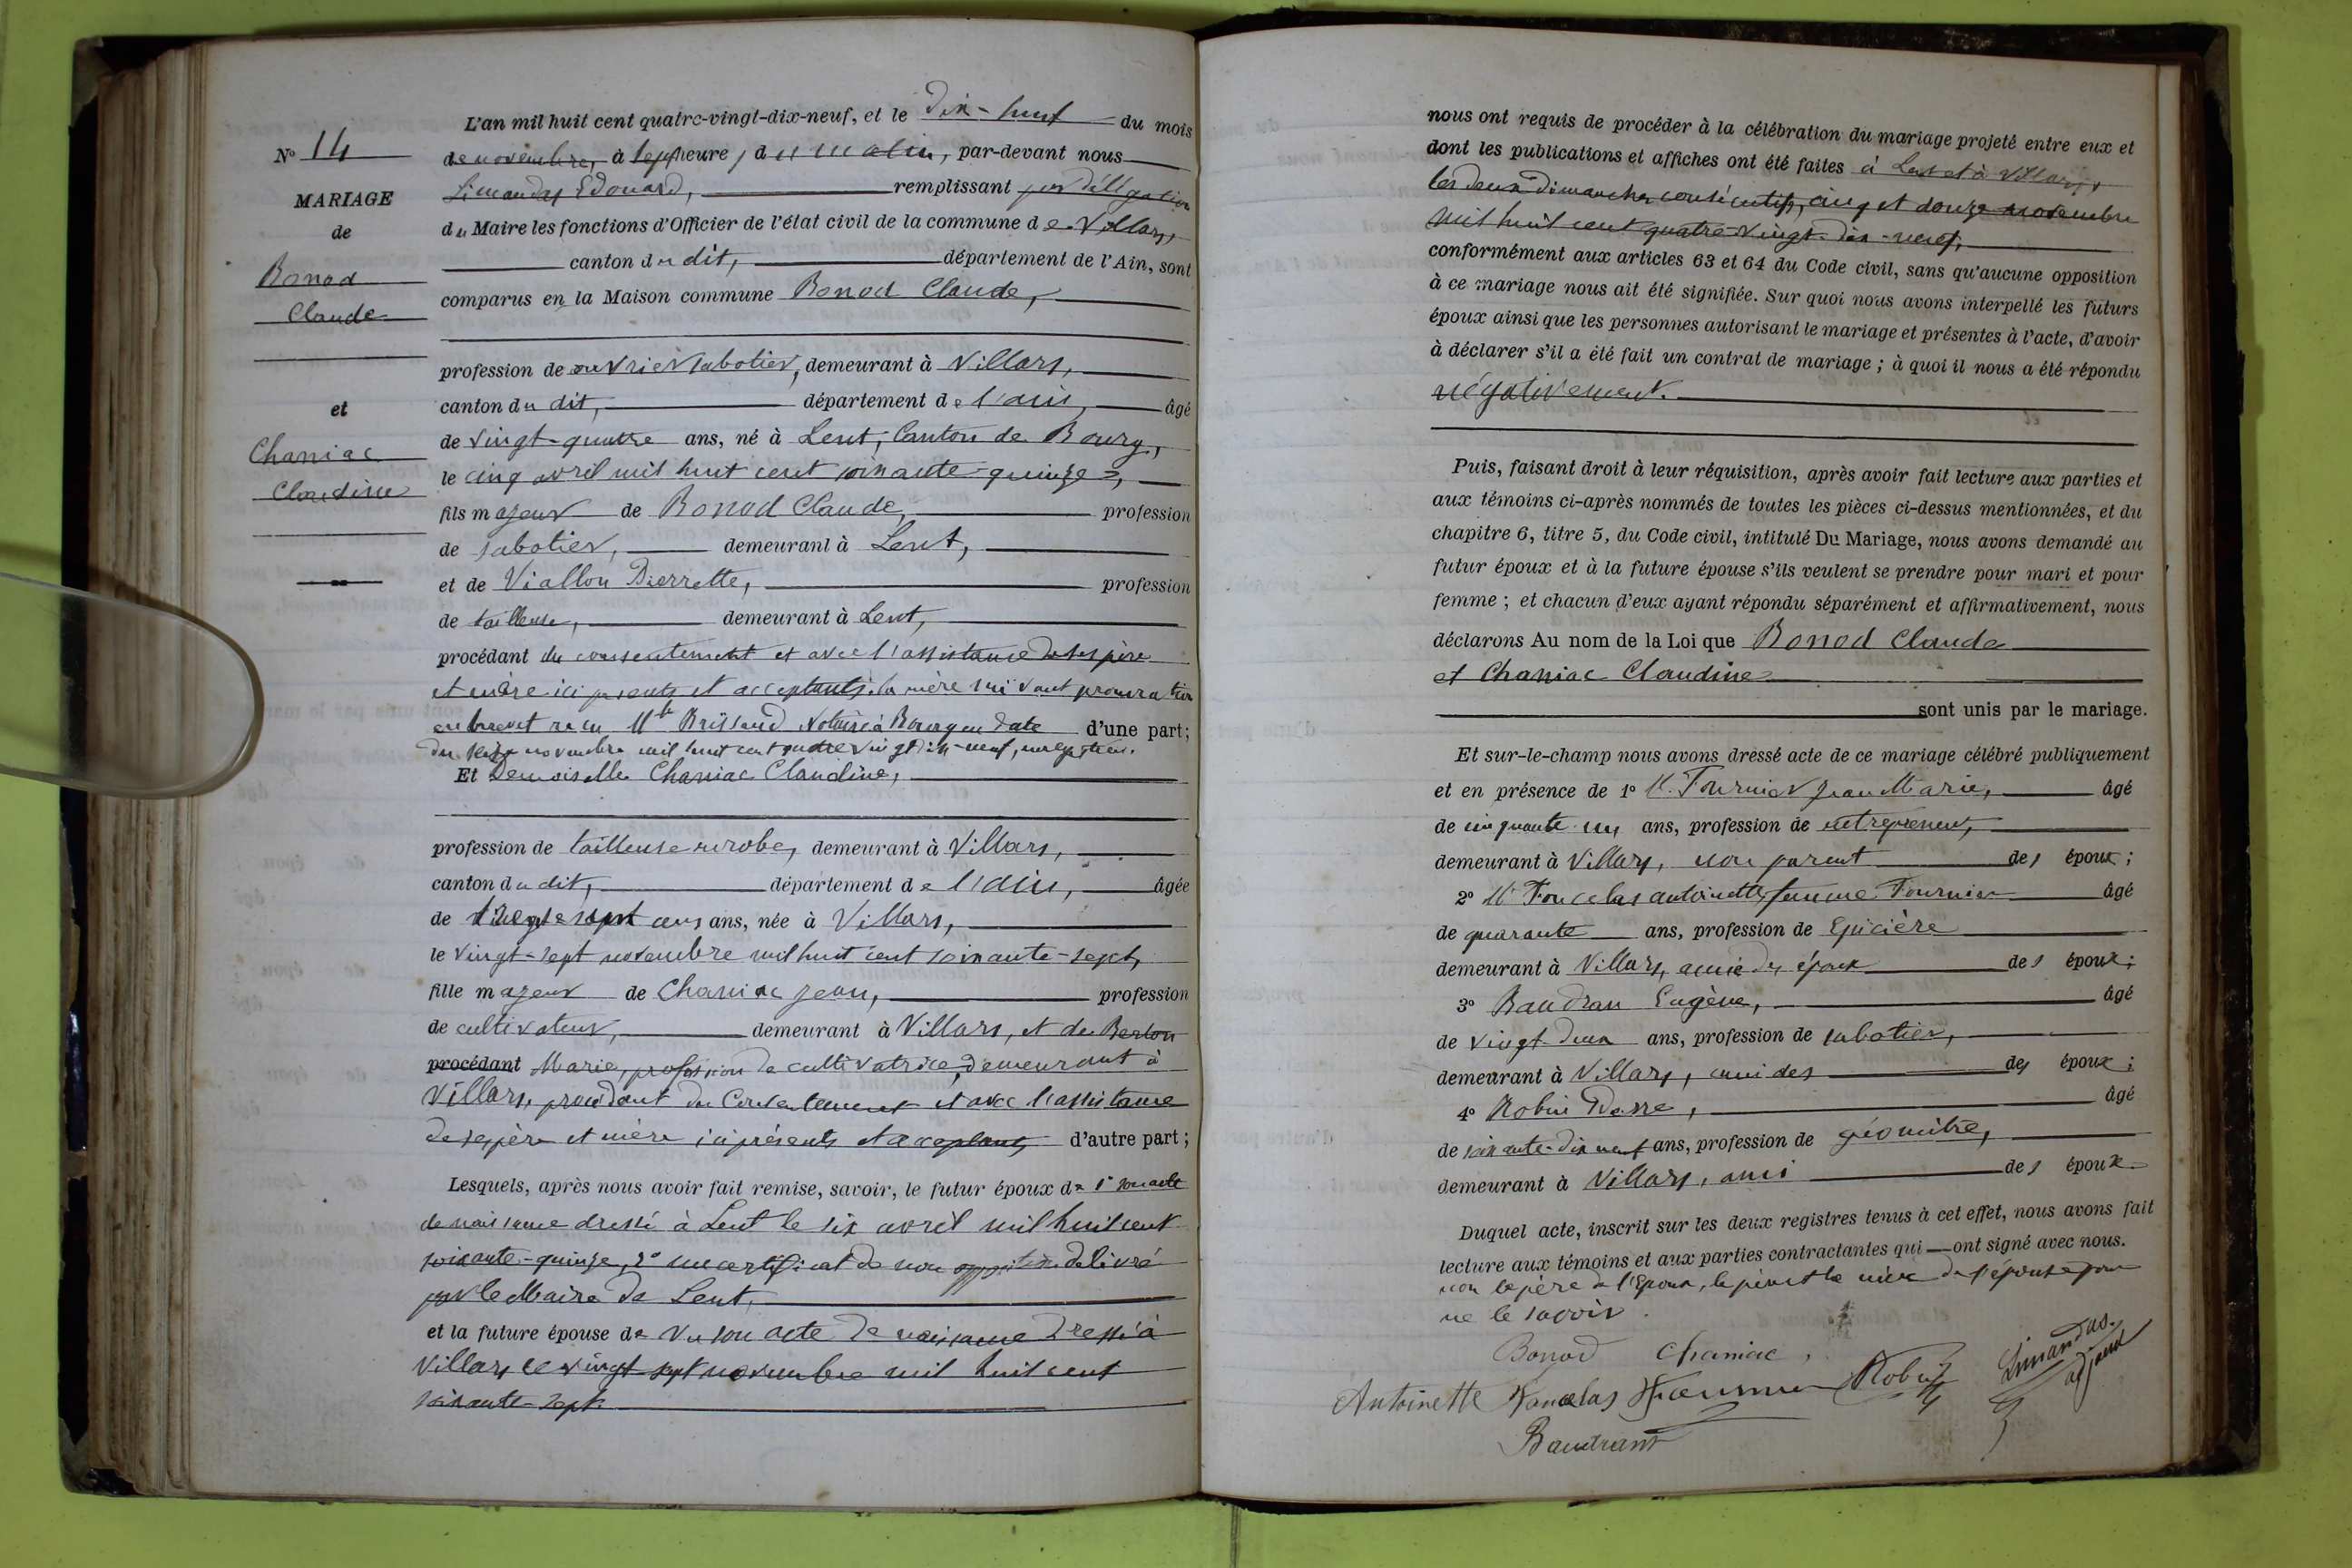 L'an mil huit cent quatre-vingt-dix-neuf, et le dix-huit du mois
N° 14
de novembre, à sept heures du matin, par-devant nous
Limandas Edouard, remplissant par délégation
MARIAGE
du Maire les fonctions d'Officier de l'état civil de la commune de Villars,
de
canton du dit, département de l'Ain, sont
Bonod
comparus en la Maison commune Bonod Claude,
Claude
profession de ouvrier sabotier, demeurant à Villars,
et
canton du dit, département de l'ain, âgé
de vingt-quatre ans, né à Lent, Canton de Bourg,
Chaniac
le cinq avril mil huit cent soixante-quinze,
Claudine
fils majeur de Bonod Claude, profession
de sabotier, demeurant à Lent,
et de Viallon Pierrette, profession
de tailleuse, demeurant à Lent,
procédant du consentement et avec l'assistance de ses père
et mère ici présents et acceptants, la mère suivant procuration
en brevet reçu Me Brissaud Notaire à Bourg en date d'une part;
du seize novembre mil huit cent quatre vingt dix-neuf, enregistrée.
Et Demoiselle Chaniac Claudine,
profession de tailleuse en robe, demeurant à Villars,
canton du dit, département de l'ain, âgée
de ans, née à Villars,
le vingt-sept novembre mil huit cent soixante-sept,
fille majeur de Chaniac Jean, profession
de cultivateur, demeurant à Villars, et de Berlon
procédant Marie, profession de cultivatrice, demeurant à
Villars, procédant du Consentement et avec l'assistance
de ses père et mère ici présents et acceptants d'autre part;
Lesquels, après nous avoir fait remise, savoir, le futur époux de 1° son acte
de naissance dressé à Lent le six avril mil huit cent
soixante-quinze, 2° un certificat de non opposition délivré
par le Maire de Lent,
et la future épouse de Vu son acte de naissance dressé à
Villars le vingt sept novembre mil huit cent
soixante-sept.
nous ont requis de procéder à la célébration du mariage projeté entre eux et
dont les publications et affiches ont été faites à Lent et à Villars,
les deux dimanches consécutifs, cinq et douze novembre
mil huit cent quatre-vingt-dix-neuf,
conformément aux articles 63 et 64 du Code civil, sans qu'aucune opposition
à ce mariage nous ait été signifiée. Sur quoi nous avons interpellé les futurs
époux ainsi que les personnes autorisant le mariage et présentes à l'acte, d'avoir
à déclarer s'il a été fait un contrat de mariage ; à quoi il nous a été répondu
négativement.
Puis, faisant droit à leur réquisition, après avoir fait lecture aux parties et
aux témoins ci-après nommés de toutes les pièces ci-dessus mentionnées, et du
chapitre 6, titre 5, du Code civil, intitulé Du Mariage, nous avons demandé au
futur époux et à la future épouse s'ils veulent se prendre pour mari et pour
femme ; et chacun d'eux ayant répondu séparément et affirmativement, nous
déclarons Au nom de la Loi que Bonod Claude
et Chaniac Claudine
sont unis par le mariage.
Et sur-le-champ nous avons dressé acte de ce mariage célébré publiquement
et en présence de 1° M. Fournier Jean Marie, âgé
de cinquante un ans, profession de entrepreneur,
demeurant à Villars, non parent des époux;
2° Me Foncelas antoinette femme Fournier âgé
de quarante ans, profession de Epicière
demeurant à Villars, amie des époux des époux;
3° Baudran Eugène, âgé
de vingt deux ans, profession de sabotier,
demeurant à Villars, ami des des époux;
4° Robin Pierre, âgé
de soixante-dix neuf ans, profession de géomètre,
demeurant à Villars, ami des époux.
Duquel acte, inscrit sur les deux registres tenus à cet effet, nous avons fait
lecture aux témoins et aux parties contractantes qui — ont signé avec nous.
non le père de l'Epoux, le père et la mère de l'épouse pour
ne le savoir.
Bonod Chaniac,
Limandas
adjoint
Antoinette Foncelas Fournier Robin
Baudrant